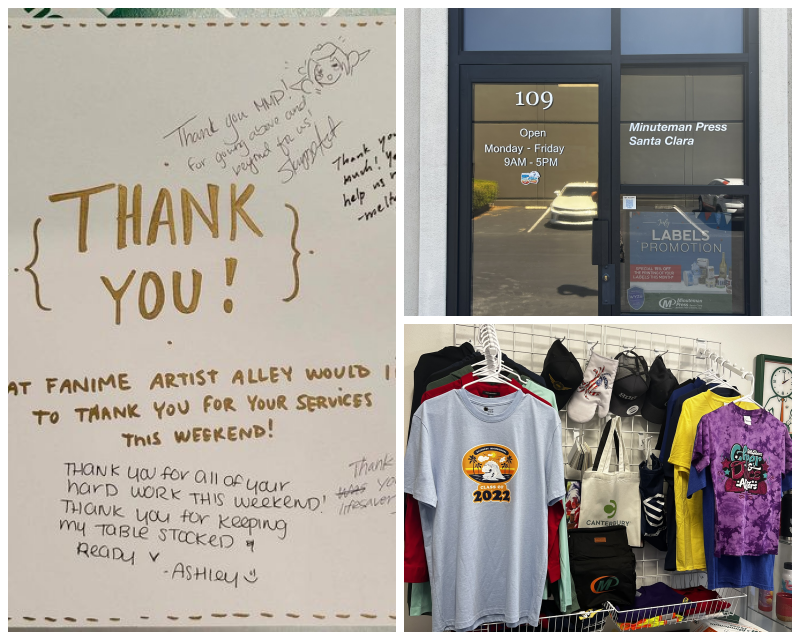 Thank you MMP!
for going above and
beyond for us!
Thank you
much!
help us
THANK
YOU!
AT FANIME ARTIST ALLEY WOULD
TO THANK YOU FOR YOUR SERVICES
THIS WEEKEND!
THANK YOU FOR ALL OF YOUR
HARD WORK THIS WEEKEND!
THANK YOU FOR KEEPING
MY TABLE STOCKED &
READY
-ASHLEY
Thank
lifesaver
109
Open
Monday - Friday
9AM - 5PM
Minuteman Press
Santa Clara
July
LABELS
PROMOTION
Minuteman
Press
CLASS OF
2022
CANTERBURY